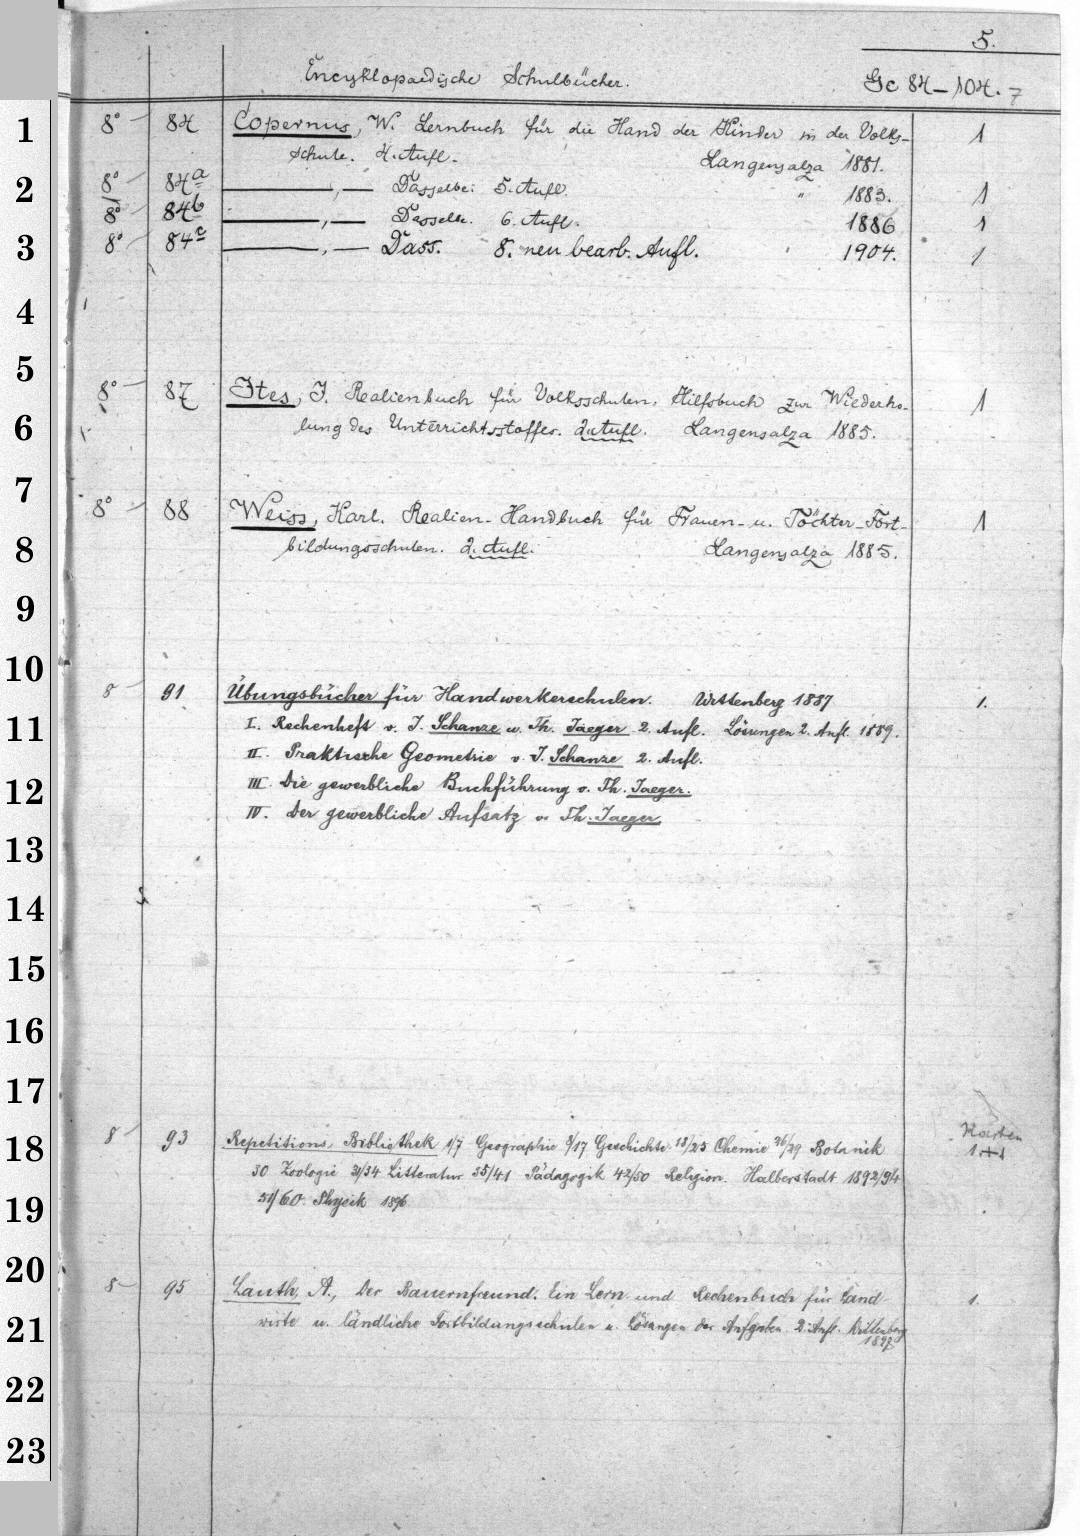 5.
Encyklopaedische Schulbücher. Gc 84-104. 7
1 8° 84 Copernus, W. Lernbuch für die Hand der Kinder in der Volks-
schule. 4. Aufl. Langensalza 1881. 1
2 8° 84a ———,— Dasselbe. 5. Aufl. " 1883. 1
8° 84b ———,— Dasselbe. 6. Aufl. 1886 1
3 8° 84c ———,— Dass. 8. neu bearb. Aufl. " 1904. 1
4
5
8° 87 Ites, J. Realienbuch für Volksschulen. Hilfsbuch zur Wiederho-
6 lung des Unterrichtsstoffes. 2. Aufl. Langensalza 1885. 1
7
8° 88 Weiss, Karl. Realien-Handbuch für Frauen- u. Töchter-Fort-
8 bildungsschulen. 2. Aufl. Langensalza 1885. 1
9
10
8 91 Übungsbücher für Handwerkerschulen. Wittenberg 1887 1.
11 I. Rechenheft v. J. Schanze u. Th. Jaeger 2. Aufl. Lösungen 2. Aufl. 1889.
II. Praktische Geometrie v. J. Schanze 2. Aufl.
12 III. Die gewerbliche Buchführung v. Th. Jaeger.
IV. Der gewerbliche Aufsatz v. Th. Jaeger
13
14
15
16
17
18 8 93 Repetitions Bibliothek 1/7 Geographie 8/17 Geschichte 18/25 Chemie 26/29 Botanik Karten
30 Zoologie 31/34 Litteratur 35/41 Pädagogik 42/50 Religion. Halberstadt 1892/94
19 51/60. Physik 1896
20
8 95 Lauth, A., Der Bauernfreund. Ein Lern- und Rechenbuch für Land-
21 wirte u. ländliche Fortbildungsschulen u. Lösungen der Aufgaben. 2. Aufl. Wittenberg
1897 1.
22
23